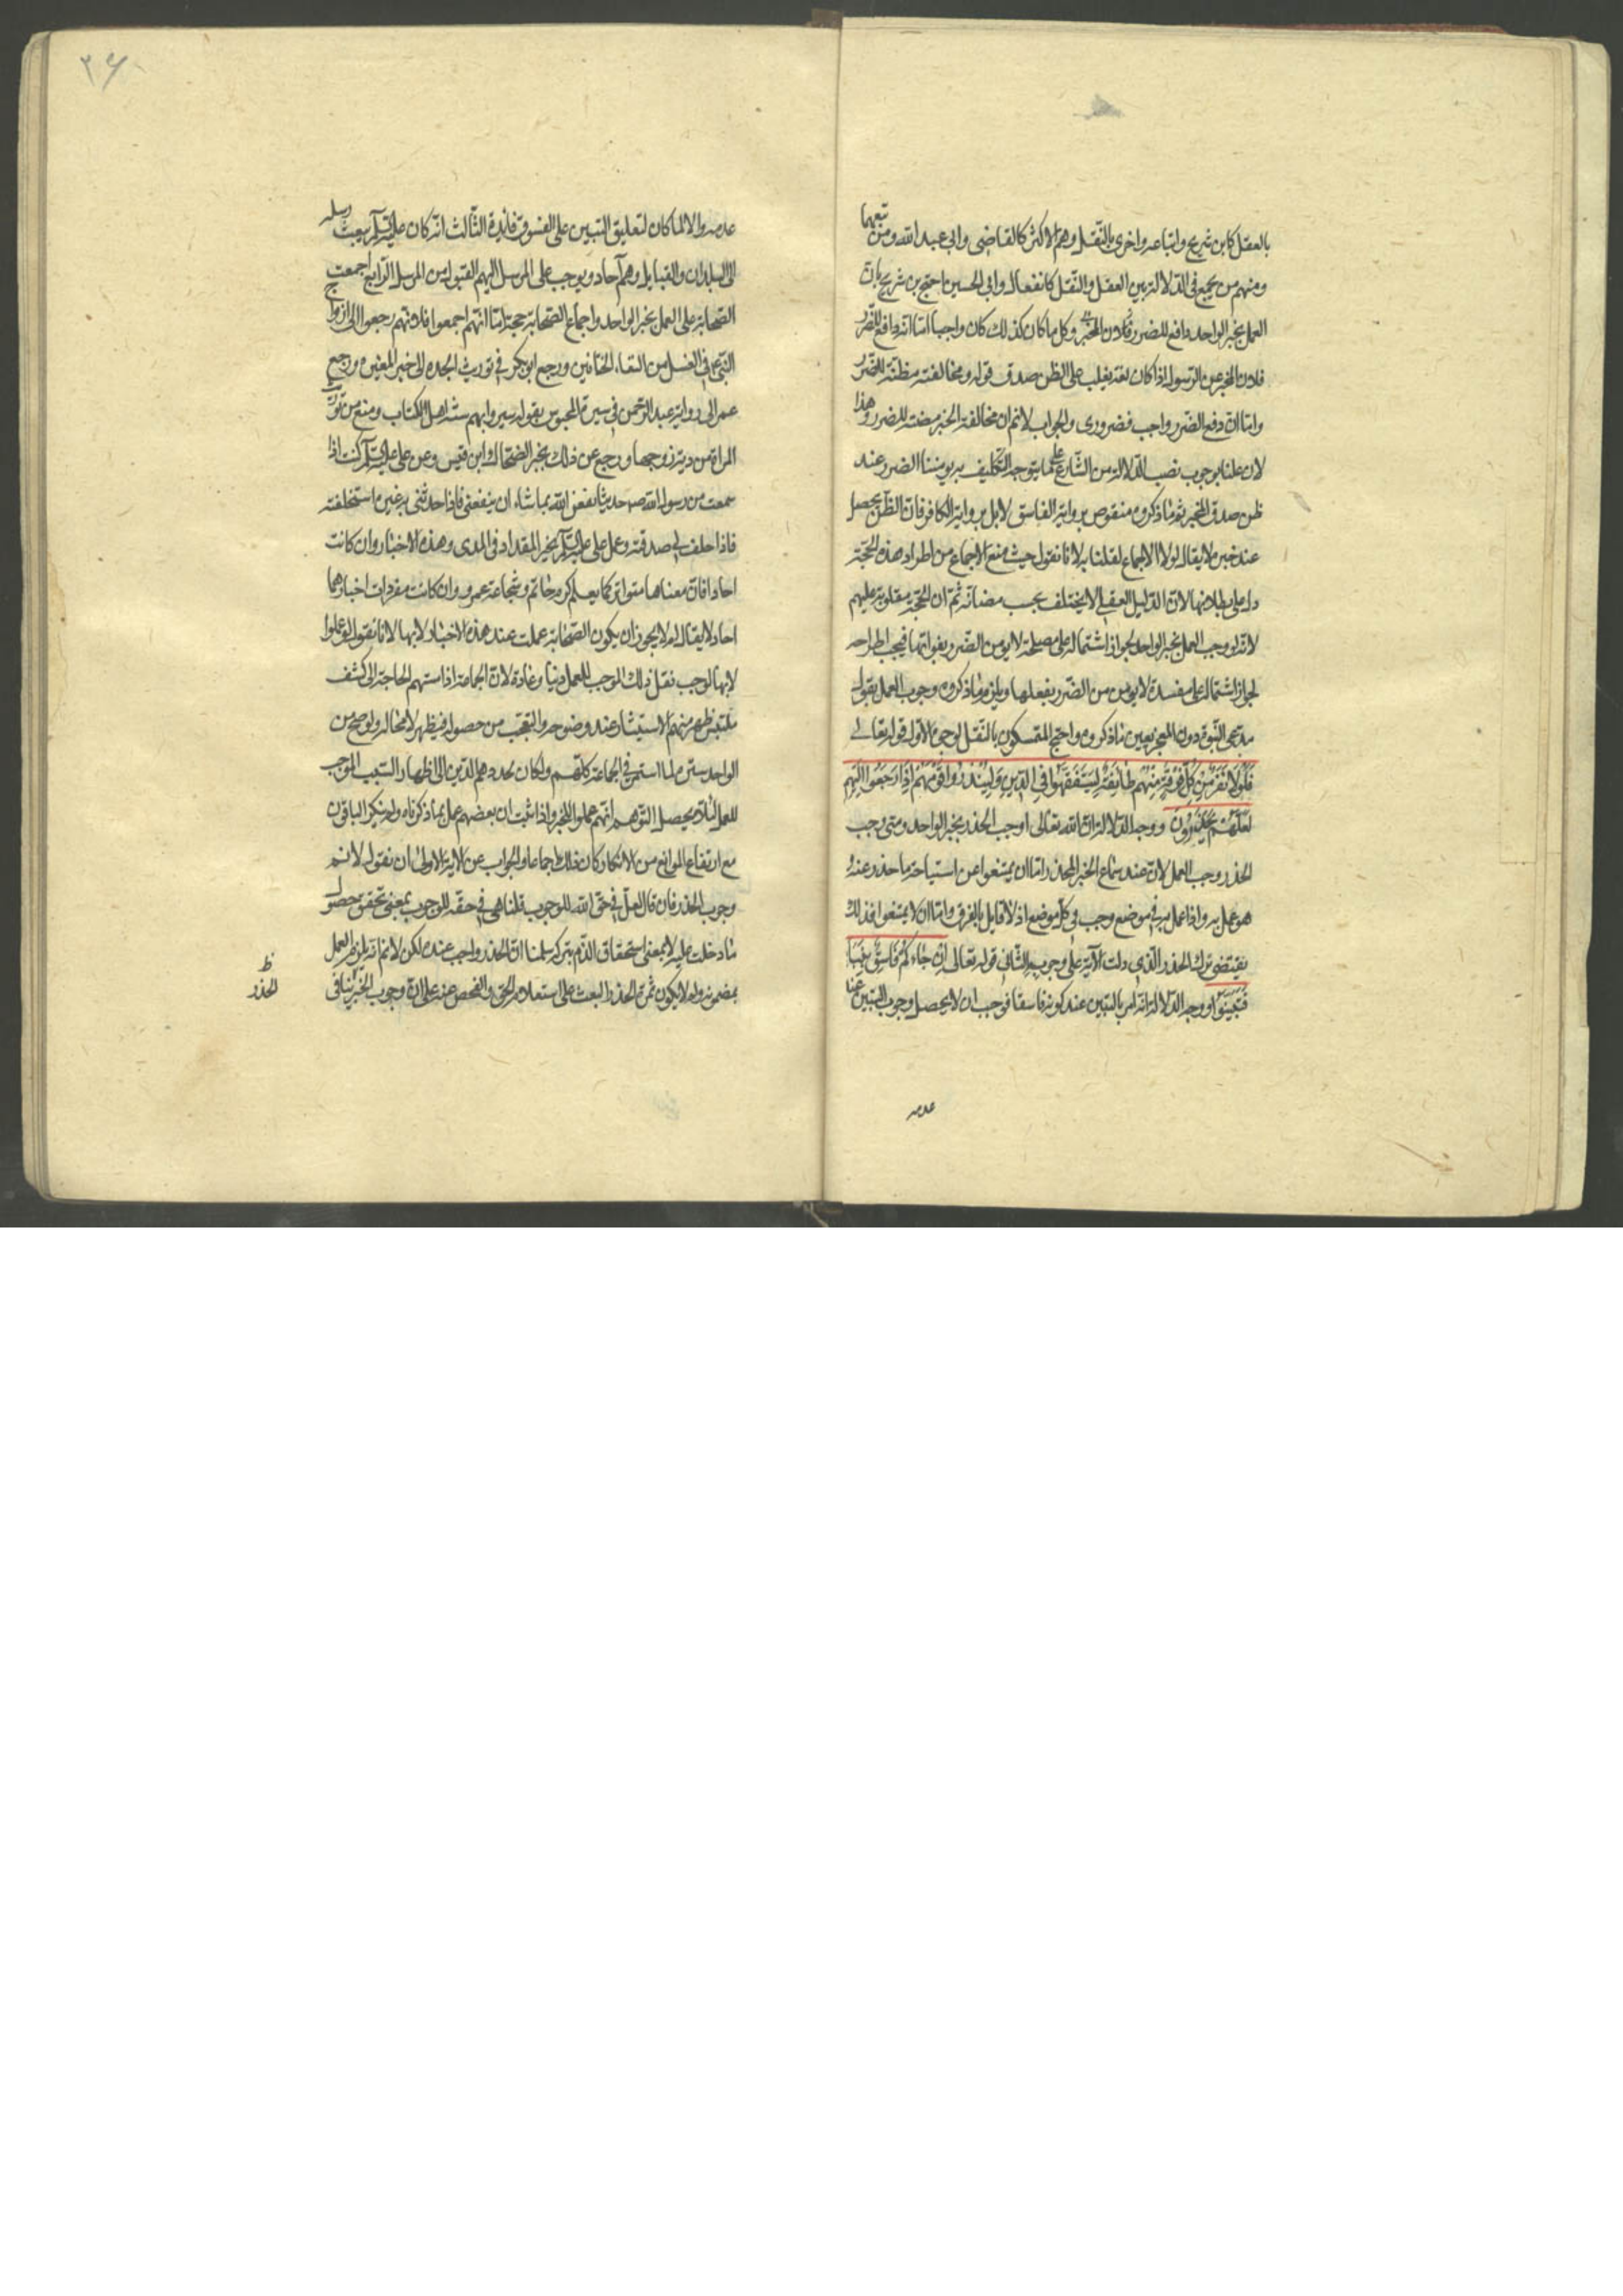 بالعقل كابن شريح واتباعه واخرى بالنّقل وهم الاكثر كالقاضى وابى عبد الله ومن تبعهما
ومنهم من يجمع فى الدّلالة بين العقل والنّقل كالقفال وابى الحسين احتج بن شريح بانّ
العمل بخبر الواحد دافع للضرر وكل ما كان كذلك كان واجبا امّا انّه دافع للضّرر
فلان المخبر عن الرّسول اذا كان ثقة يغلب على الظن صدق قوله ومخالفته مظنّة للضّرر
وامّا انّ دفع الضّرر واجب فضرورى والجواب لا نم ان مخالفة الخبر مضنة للضرر وهذا
لان علمنا بوجوب نصب الدّلالة من الشّارع على ما يتوجه التّكليف به يومننا الضرر عند
ظن صدق المخبر ثم ما ذكروه منقوص برواية الفاسق لا بل برواية الكافر فان الظّن يحصل
عند خبره لا يقال لولا الاجماع لقلنا به لانا نقول حيث منع الاجماع من اطراد هذه الحجّة
دل على بطلانها لانّ الدّليل العقلى لا يختلف بحسب مضانّه ثمّ ان الحجّة مقلوبة عليهم
لانّه لو وجب العمل بخبر الواحد لجواز اشتماله على مصلحة لا يومن الضّرر بفواتها فيجب اطراحه
لجواز اشتماله على مفسدة لا يومن من الضّرر بفعلها ويلزم ما ذكروه وجوب العمل بقول
مدّعى النّبوّة دون المعجز بعين ما ذكروه واحتج المتمسكون بالنّقل لوجوه الاوّل قوله تعالى
فَلَوْلا نَفَرَ مِنْ كُلِّ فِرْقَةٍ مِنْهُم طَائِفَةٌ لِيَتَفَقَّهُوا فِي الدّينِ وَلِيُنْذِرُوا قَوْمَهُمْ اِذَا رَجَعُوا اِلَيْهِم
لَعَلَّهُمْ يَحْذَرُونَ ووجه الدّلالة انّ الله تعالى اوجب الحذر بخبر الواحد ومتى وجب
الحذر وجب العمل لانّ عند سماع الخبر المحذر امّا ان يمتنعوا عن استباحة ما حذر عنهُ
هو عمل به واذا عمل به فى موضع وجب فى كلّ موضع اذ لا قايل بالفرق وامّا ان لا يمتنعوا فذلك
يقتضى ترك الحذر الّذى دلت الآية على وجوبه الثّانى قوله تعالى اِنْ جَاءَكُمْ فَاسِقٌ بِنَبَاٍ
فَتَبَيَّنُوا ووجه الدّلالة انّه امر بالتبيّن عند كونه فاسقا فوجب ان لا يحصل وجوب التبيّن عند
عدمه
٢٦
عدمه والا لما كان لتعليق التبيين على الفسوق فائدة الثّالث انّه كان عليه السّلم يبعث رسله
الى البلدان والقبايل وهم آحاد ويوجب على المرسل اليهم القبول من المرسل الرّابع اجمعت
الصّحابة على العمل بخبر الواحد واجماع الصّحابة حجة امّا انّهم اجمعوا فلانّهم رجعوا الى ازواج
النّبىّ فى الغسل من التقاء الختانين ورجع ابو بكر فى توريث الجدة الى خبر المغيره ورجع
عمر الى رواية عبد الرّحمن فى سيرة المجوس بقوله سيروا بهم سنّة اهل الكتاب ومنع من توريث
المراة من دية زوجها ورجع عن ذلك بخبر الضحّاك وابن قيس وعن على عليه السّلم كنت اذا
سمعت من رسول الله ص حديثا نفعنى الله بما شاء ان ينفعنى فاذا حدثنى به غيره استخلفته
فاذا حلف لى صدقته وعمل على عليه السّلم بخبر المقداد فى المذى وهذه الاخبار وان كانت
احادا فانّ معناها متواتر كما يعلم كرم حاتم وشجاعة عمرو وان كانت مفردات اخبارهما
احاد لا يقال لم لا يجوز ان يكون الصّحابة عملت عند هذه الاخبار لا بها لانا نقول لو عملوا
لا بها لوجب نقل ذلك الموجب للعمل دينا وعادة لانّ الجماعة اذا استهم الحاجة الى كشف
ملتبس ظهر منهم الاستبشار عند وضوحه والتعجّب من حصوله فيظهر لا محالة ولو صح من
الواحد ستره لما استمر فى الجماعة كلّهم ولكان يحددهم الدّين الى اظهار السّبب الموجب
للعمل لئلا يحصل التّوهم انّهم عملوا للخبر واذا ثبت ان بعضهم عمل بما ذكرناه ولم ينكر الباقون
مع ارتفاع الموانع من الانكار كان ذلك اجماعا والجواب عن الآية الاولى ان نقول لا نسم
وجوب الحذر فان قال لعلّ فى حقّ الله للوجوب قلنا هى فى حقه للوجوب بمعنى تحقق حصول
ما دخلت عليه لا بمعنى استحقاق الذّم بتركه سلمنا انّ الحذر واجب عنده لكن لا نم انه يلزم العمل
بمضمونه ولم لا يكون ثمرة الحذر البعث على استعلام الحق والفحص عنه على انّ وجوب الخبر ينافى
ظ
الحذر